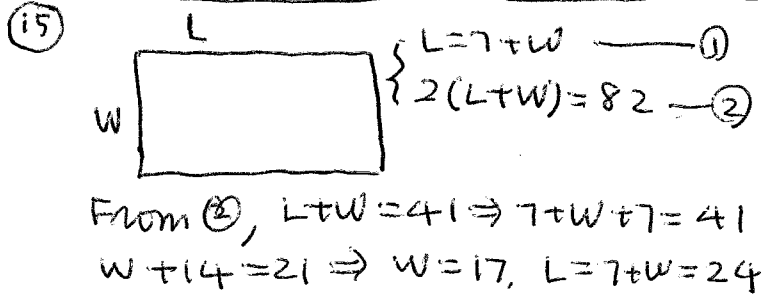 ⑮
L
L=7+W ——— ①
2(L+W)=82 — ②
W
From ②, L+W=41 ⇒ 7+W+7=41
W+14=21 ⇒ W=17, L=7+W=24